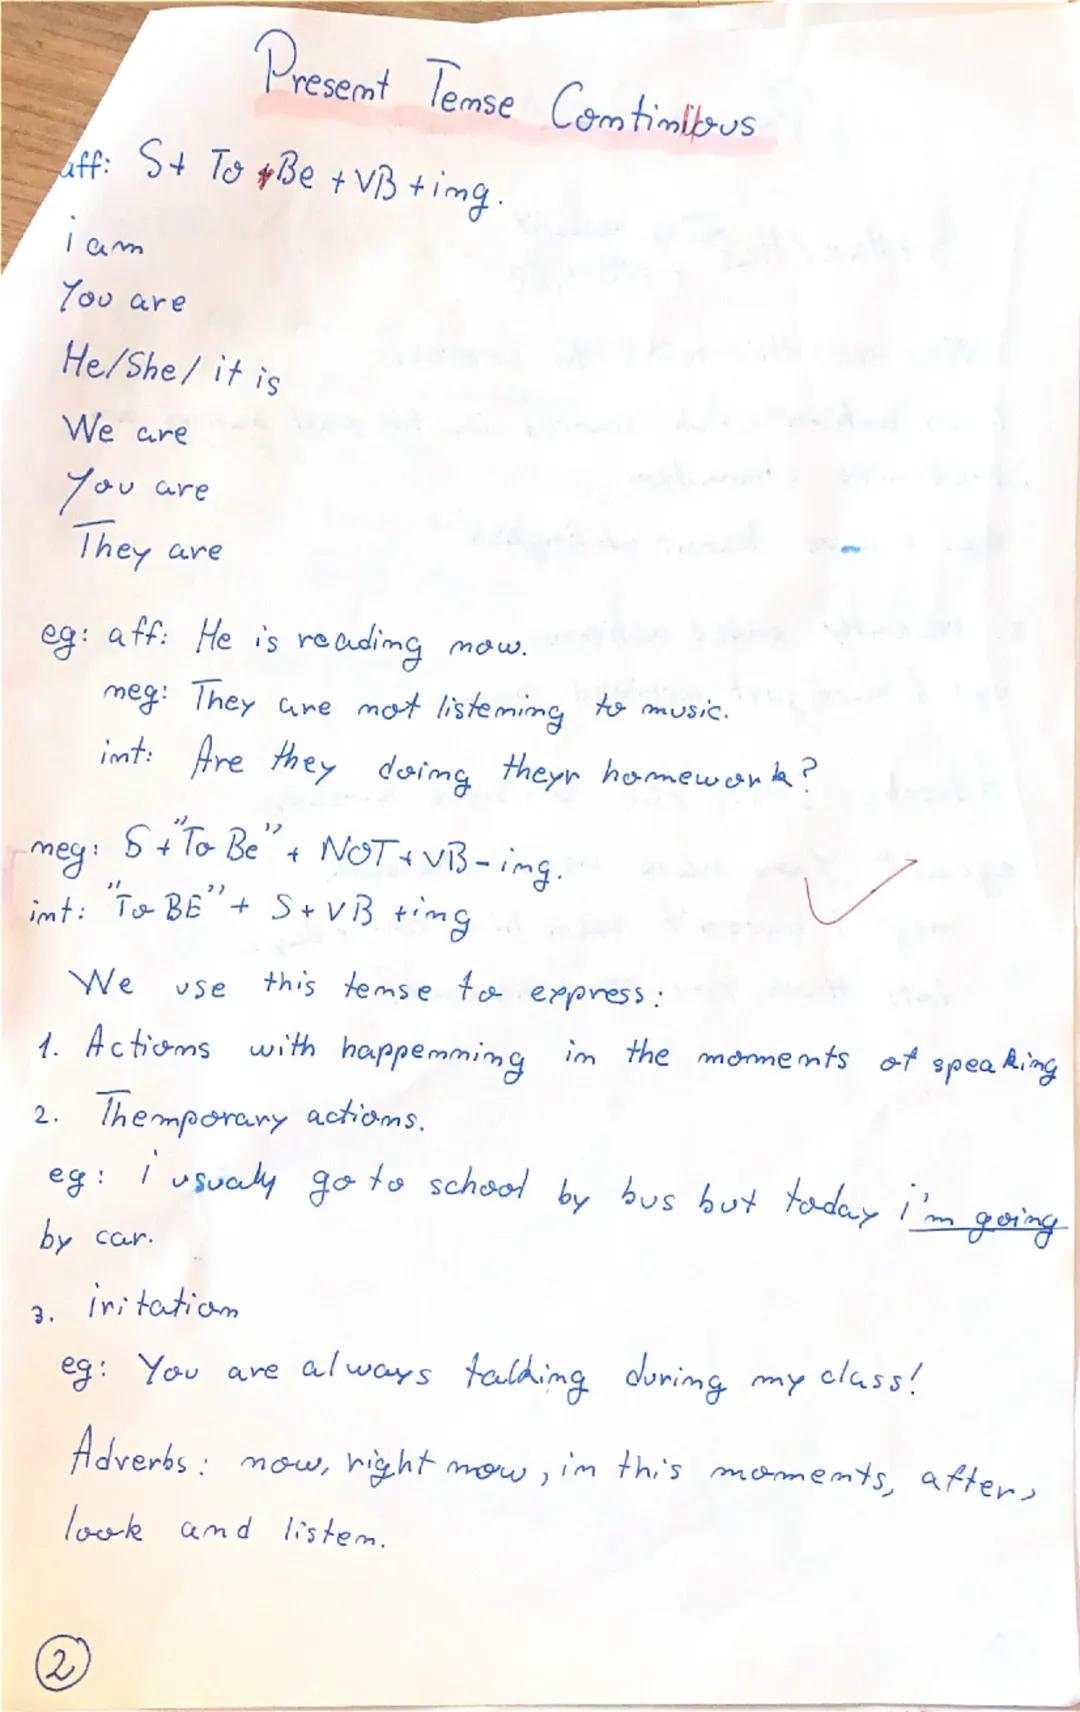 Present Tense Continuous
aff: S+ To +Be + VB +ing.
i am
You are
He/She/ it is
We are
You are
They are
eg: aff: He is reading now.
neg: They are not listening to music.
int: Are they doing theyr homework?
neg: S + "To Be" + NOT + VB - ing.
int: "To BE" + S + VB +ing
We use this tense to express:
1. Actions with happenning in the moments of speaking
2. Themporary actions.
eg: i usualy go to school by bus but today i'm going
by car.
3. iritation
eg: You are always talking during my class!
Adverbs: now, right now, in this moments, after,
look and listen.
2